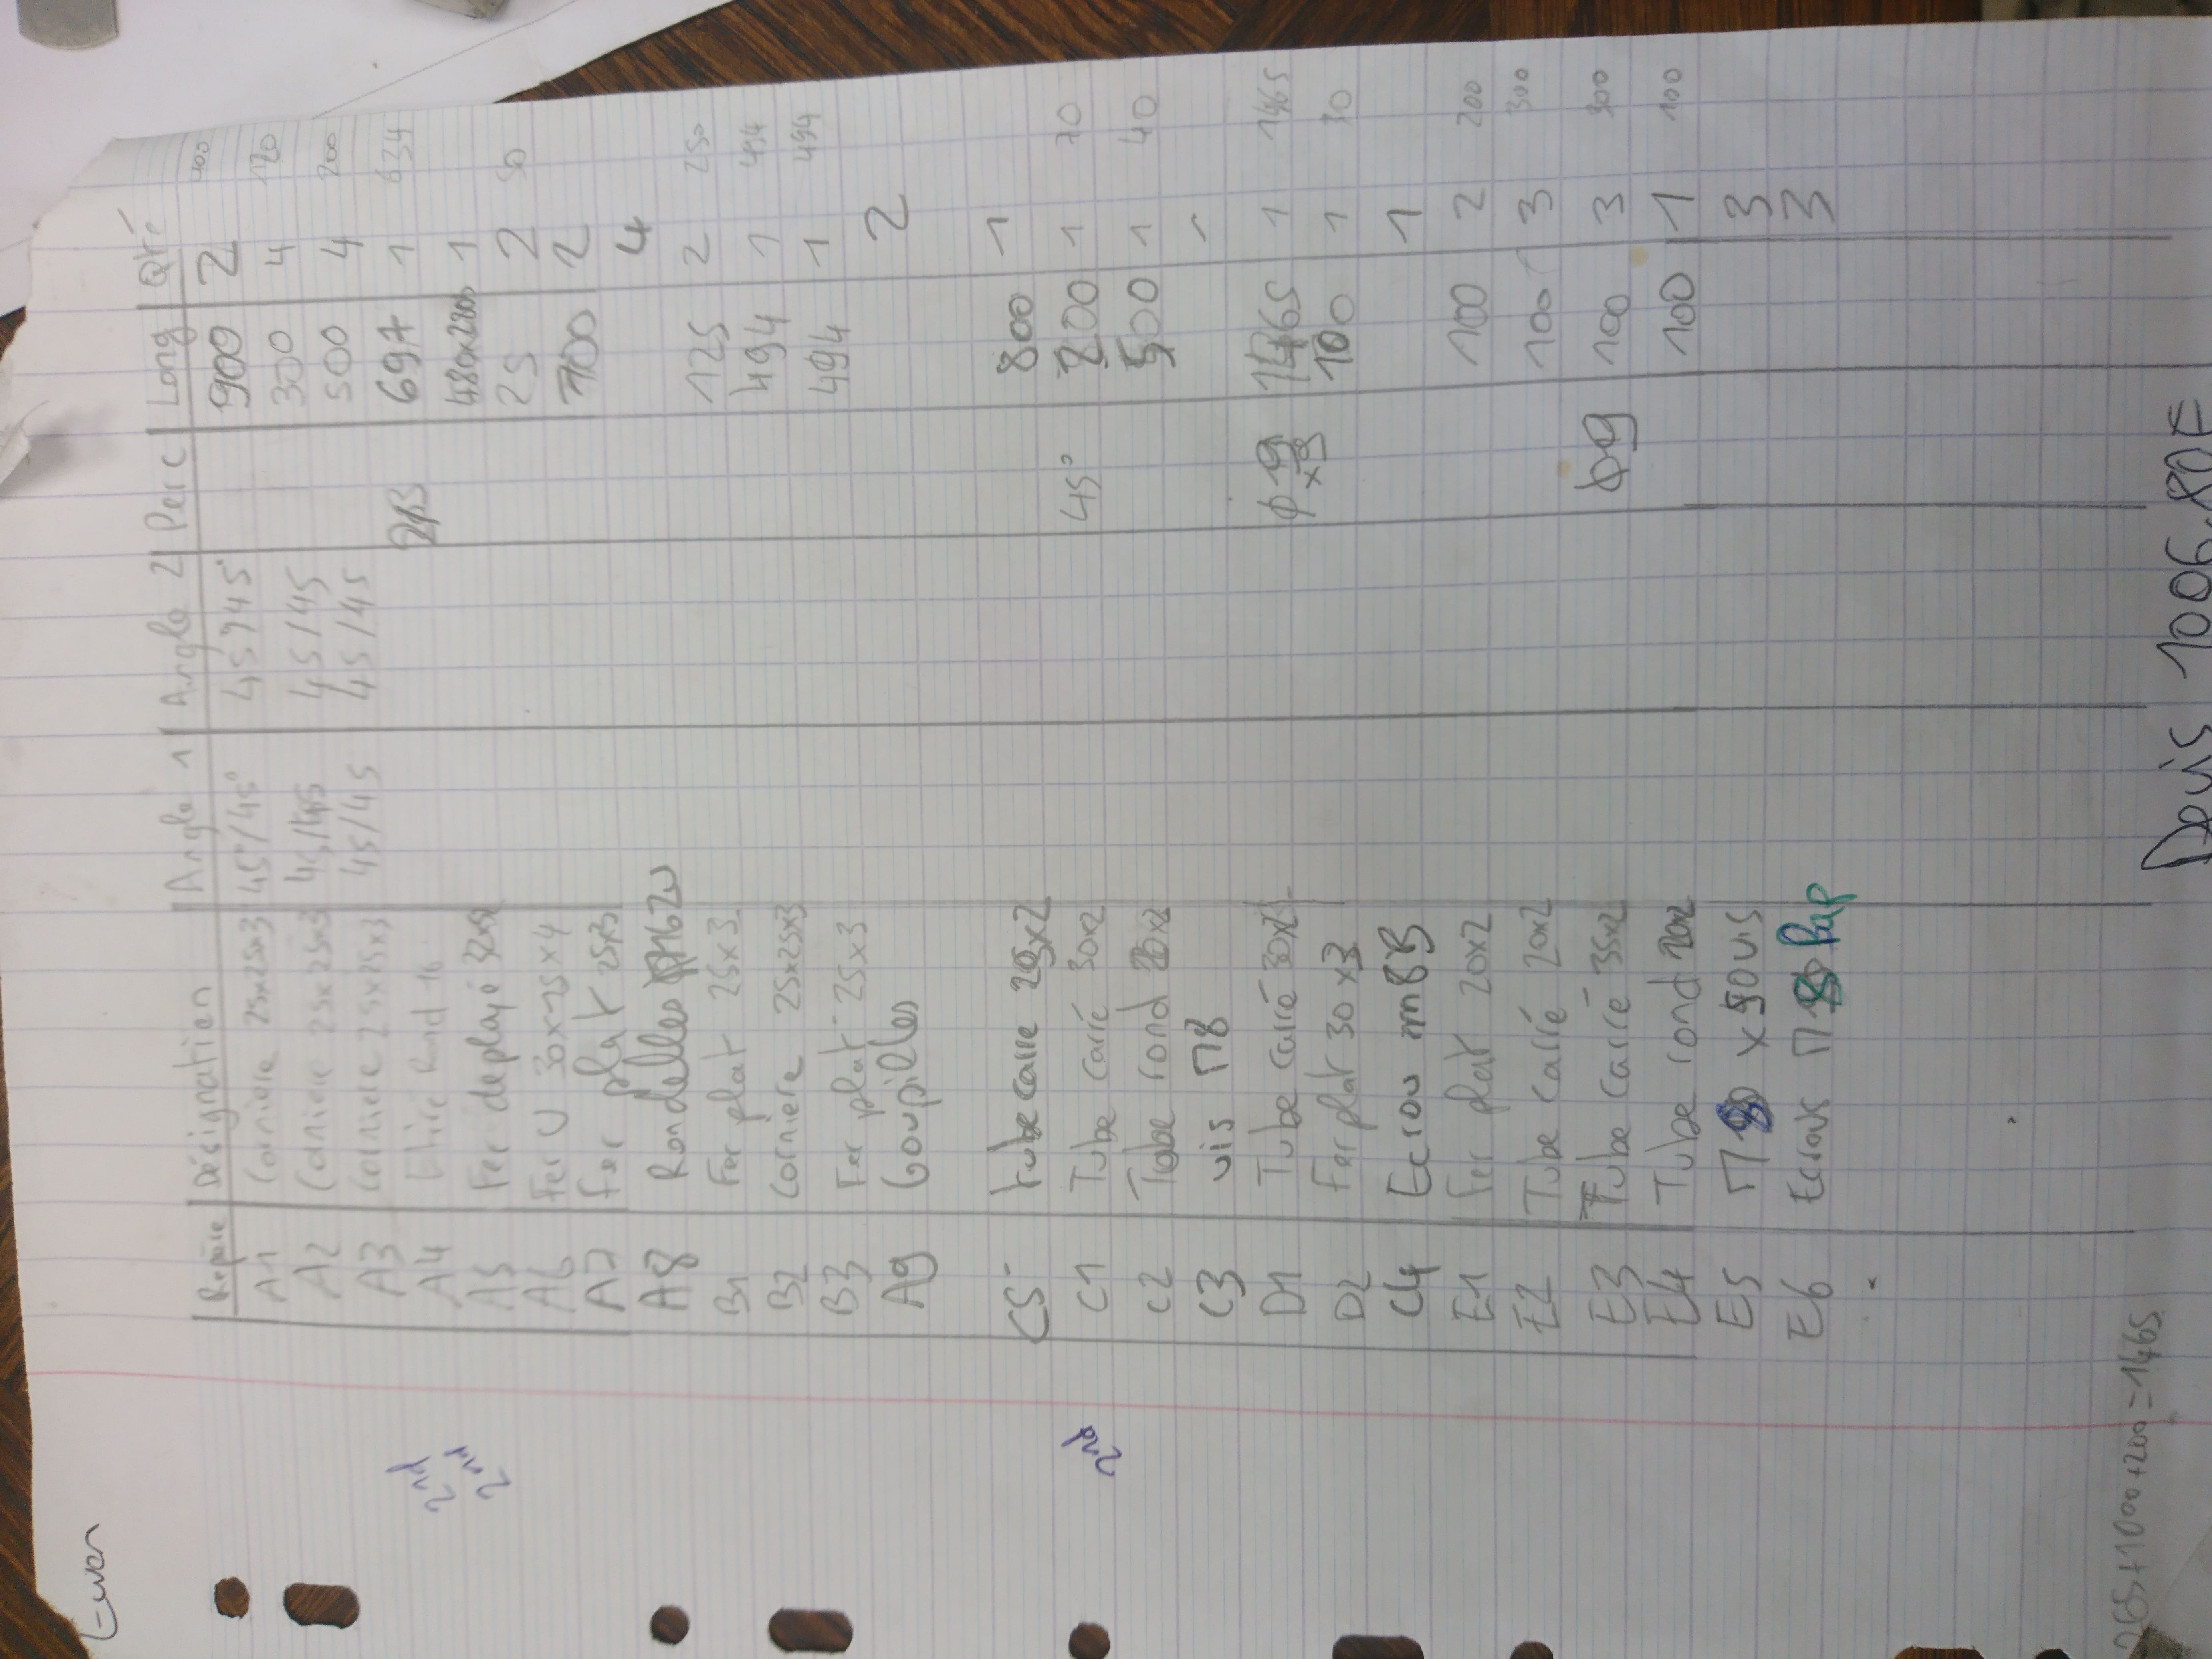 Ewen
Repère Désignation Angle 1 Angle 2 Perc Long Qté
A1 Cornière 25x25x3 45°/45° 45/45° 900 2
A2 Cornière 25x25x3 45/45 45/45 300 4 120
A3 Cornière 25x25x3 45/45 45/45 500 4 200
2nd A4 Etiré Rond 16 697 1 634
2nd A5 Fer deployé 1
A6 Fer U 30x15x4 25 2 50
A7 Fer plat 25x3 700 2
A8 Rondelles 4
B1 Fer plat 25x3 125 2 250
B2 Cornière 25x25x3 494 1 494
B3 Fer plat 25x3 494 1 494
A9 Goupilles 2
C5 Tube carre 25x2 800 1
2nd C1 Tube carré 30x2 45° 200 1 70
C2 Tube rond 20x2 500 1 40
C3 vis M8 1
D1 Tube carré 30x2 φ 9 x3 1465 1 1465
D2 Fer plat 30x3 100 1 30
C4 Ecrou 1
E1 Fer plat 20x2 100 2 200
E2 Tube carré 20x2 100 3 300
E3 Tube carré 35x2 φ9 100 3 300
E4 Tube rond 20x2 100 1 100
E5 x50 vis 3
E6 Ecrous Pap 3
265+1000+200=1465
Devis 1006.80€